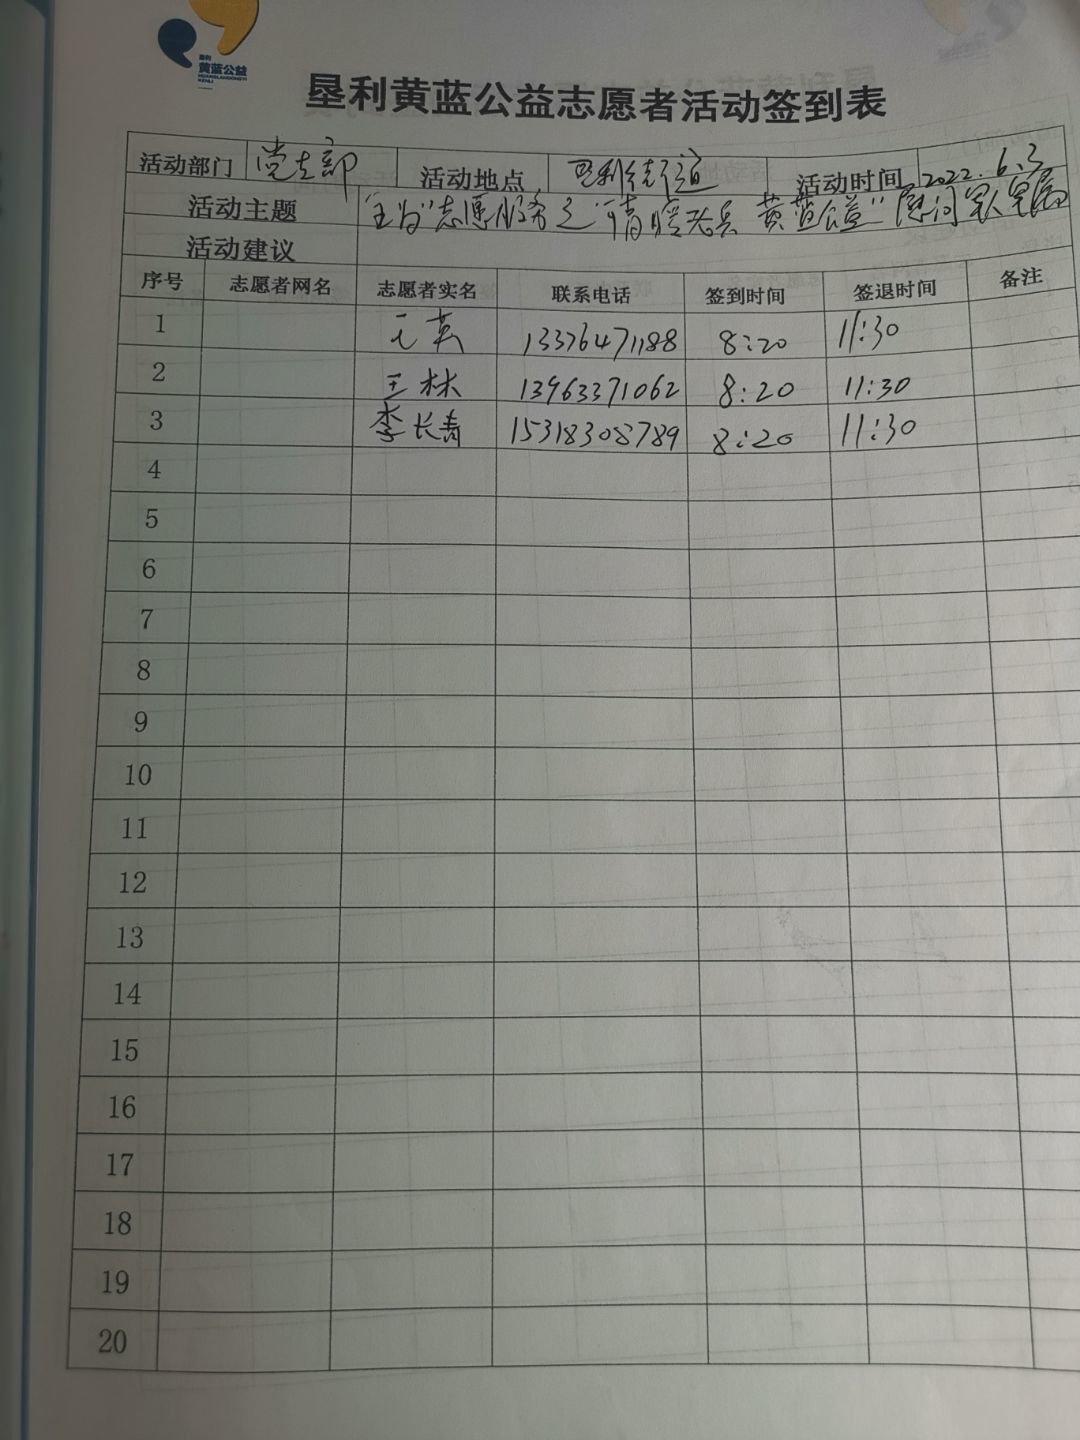 垦利
黄蓝公益
HUANGLANGONGYI
KENLI
垦利黄蓝公益志愿者活动签到表
活动部门 党支部 活动地点 垦利街道 活动时间 2022.6.3
活动主题 志愿服务之"情暖老兵 黄蓝公益"慰问军人军属
活动建议
序号 志愿者网名 志愿者实名 联系电话 签到时间 签退时间 备注
1 王英 13376471188 8:20 11:30
2 王林 13963371062 8:20 11:30
3 李长青 15318308789 8:20 11:30
4
5
6
7
8
9
10
11
12
13
14
15
16
17
18
19
20